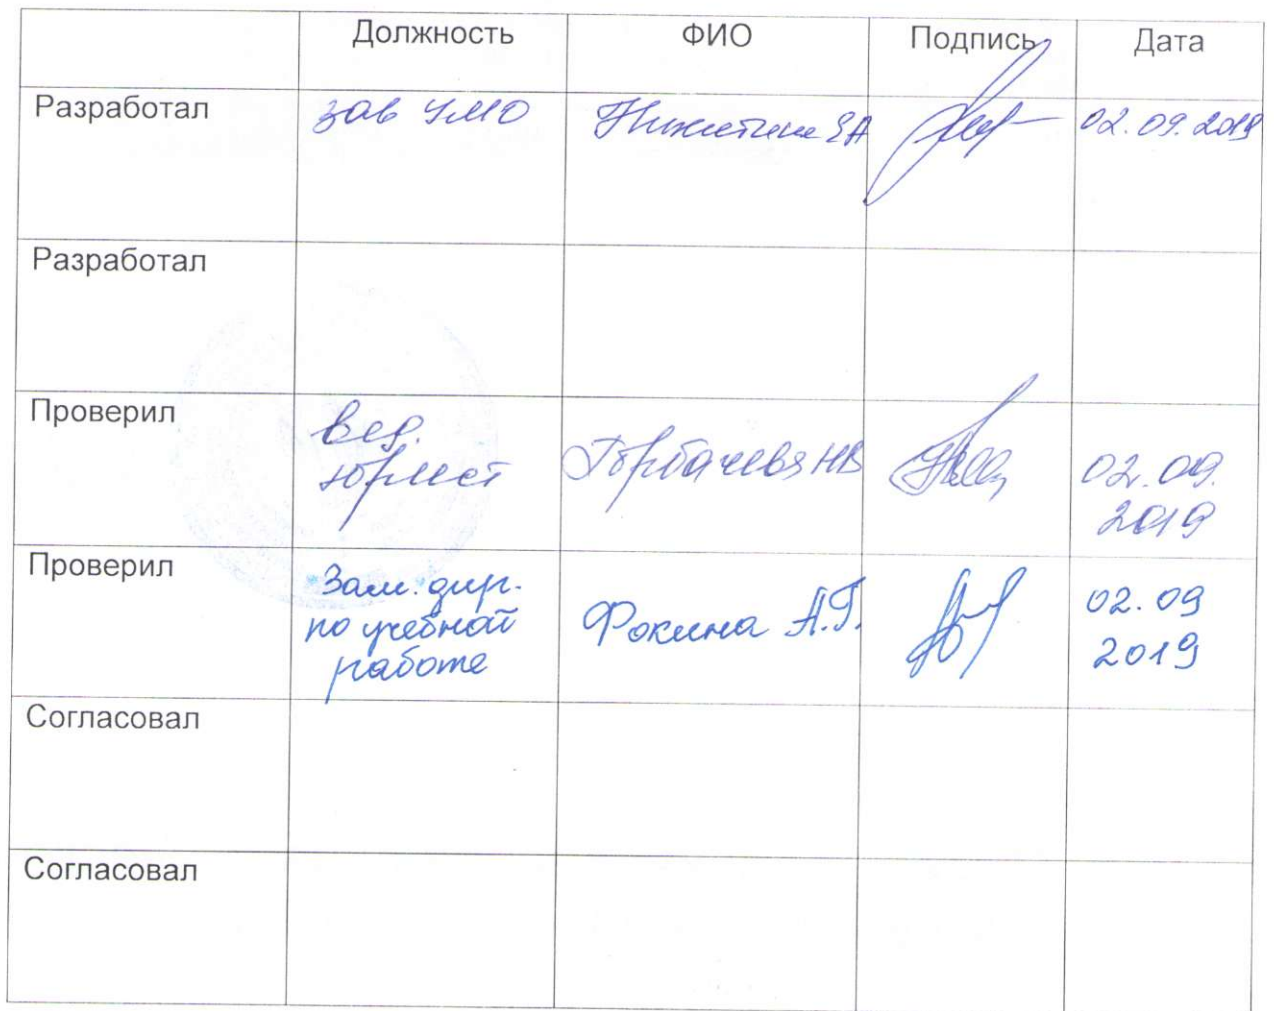 Должность ФИО Подпись Дата
Разработал зав УМО Никитина ЕА 02.09.2019
Разработал
Проверил вед. юрист Горбачева НВ 02.09. 2019
Проверил Зам. дир. по учебной работе Фокина А.Г. 02.09 2019
Согласовал
Согласовал